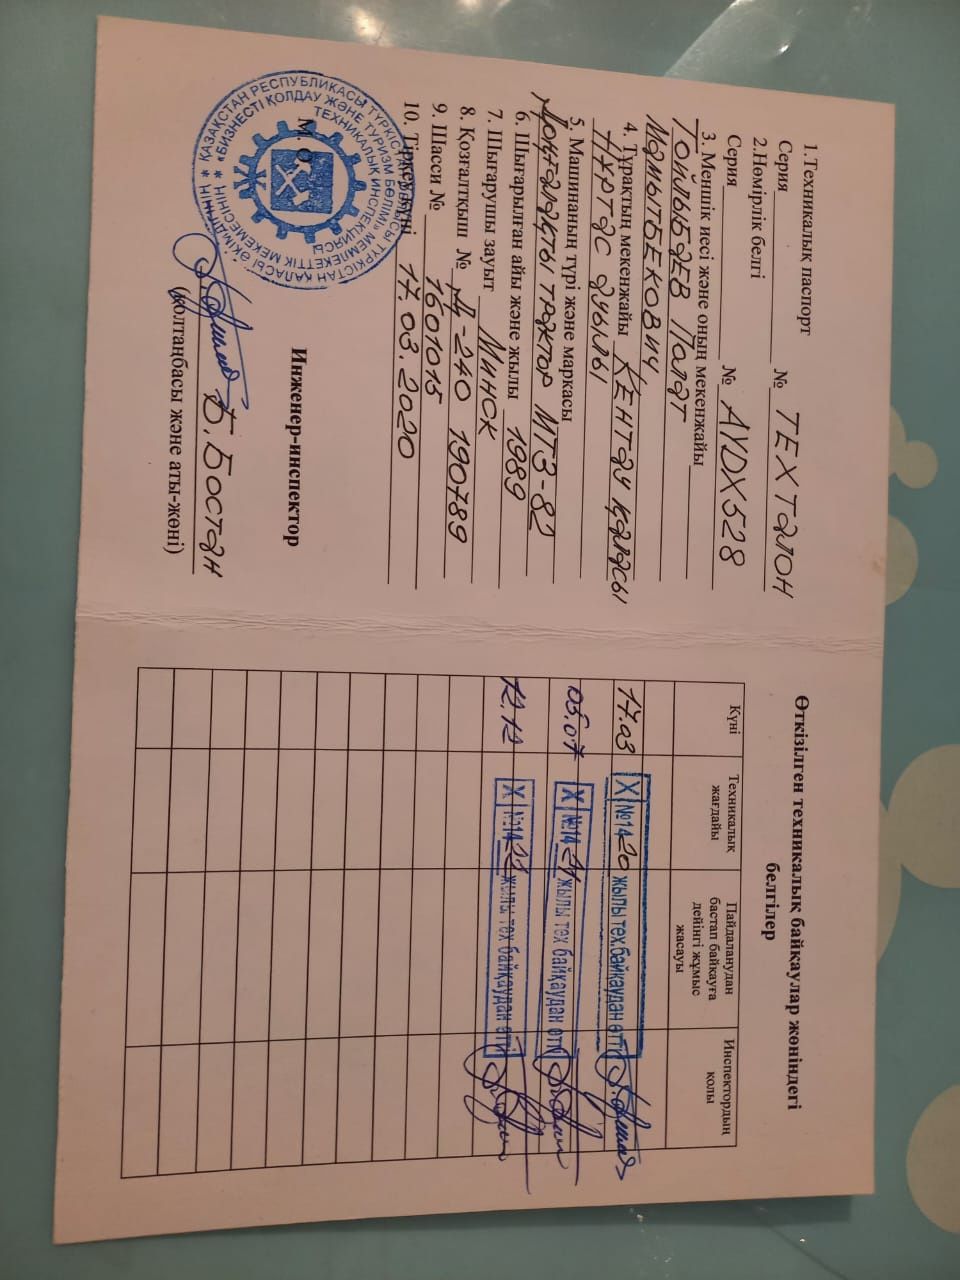 1.Техникалық паспорт
Серия № ТЕХТАЛОН
2.Нөмірлік белгі
Серия № AYDX528
3. Меншік иесі және оның мекенжайы
ТОЙЛЫБАЕВ Полат
МАМЫТБЕКОВИЧ
4. Тұрақтың мекенжайы КЕНТАУ қаласы
НҰРТАС ауылы
5. Машинаның түрі және маркасы
Дөңғалақты трактор МТЗ-82
6. Шығарылған айы және жылы 1989
7. Шығарушы зауыт МИНСК
8. Қозғалтқыш № Д-240 190789
9. Шасси № 1601015
10. Тіркеу күні 17.03.2020
М.О.
Инженер-инспектор
Б. Бостан
(қолтаңбасы және аты-жөні)
ҚАЗАҚСТАН РЕСПУБЛИКАСЫ ТҮРКІСТАН ОБЛЫСЫ ТҮРКІСТАН ҚАЛАСЫ ӘКІМДІГІНІҢ
«БИЗНЕСТІ ҚОЛДАУ ЖӘНЕ ТУРИЗМ БӨЛІМІ» МЕМЛЕКЕТТІК МЕКЕМЕСІНІҢ
ТЕХНИКАЛЫҚ ИНСПЕКЦИЯСЫ
Өткізілген техникалық байқаулар жөніндегі
белгілер
Күні
Техникалық
жағдайы
Пайдаланудан
бастап байқауға
дейінгі жұмыс
жасауы
Инспектордың
қолы
17.03 X №14 20 жылы тех.байқаудан өтті
05.07 X №14 21 жылы тех байқаудан өтті
12.12 X №14 22 жылы тех байқаудан өтті